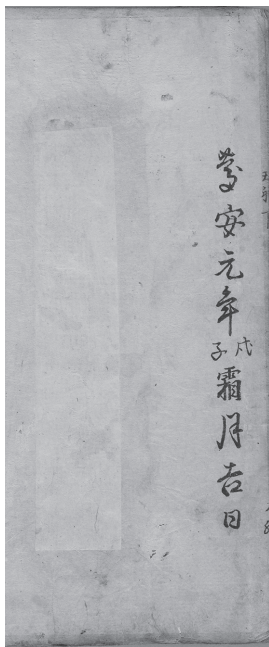 慶安元年戊子霜月吉日